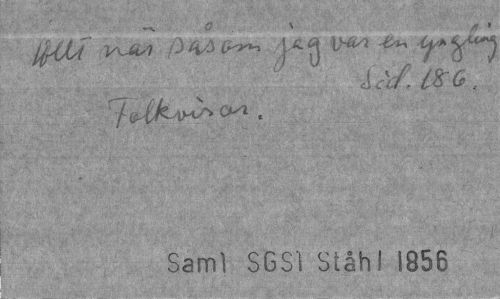 Allt när såsom jag var en yngling
Sid. 186.
Folkvisor.
Saml SGS1 Ståhl 1856